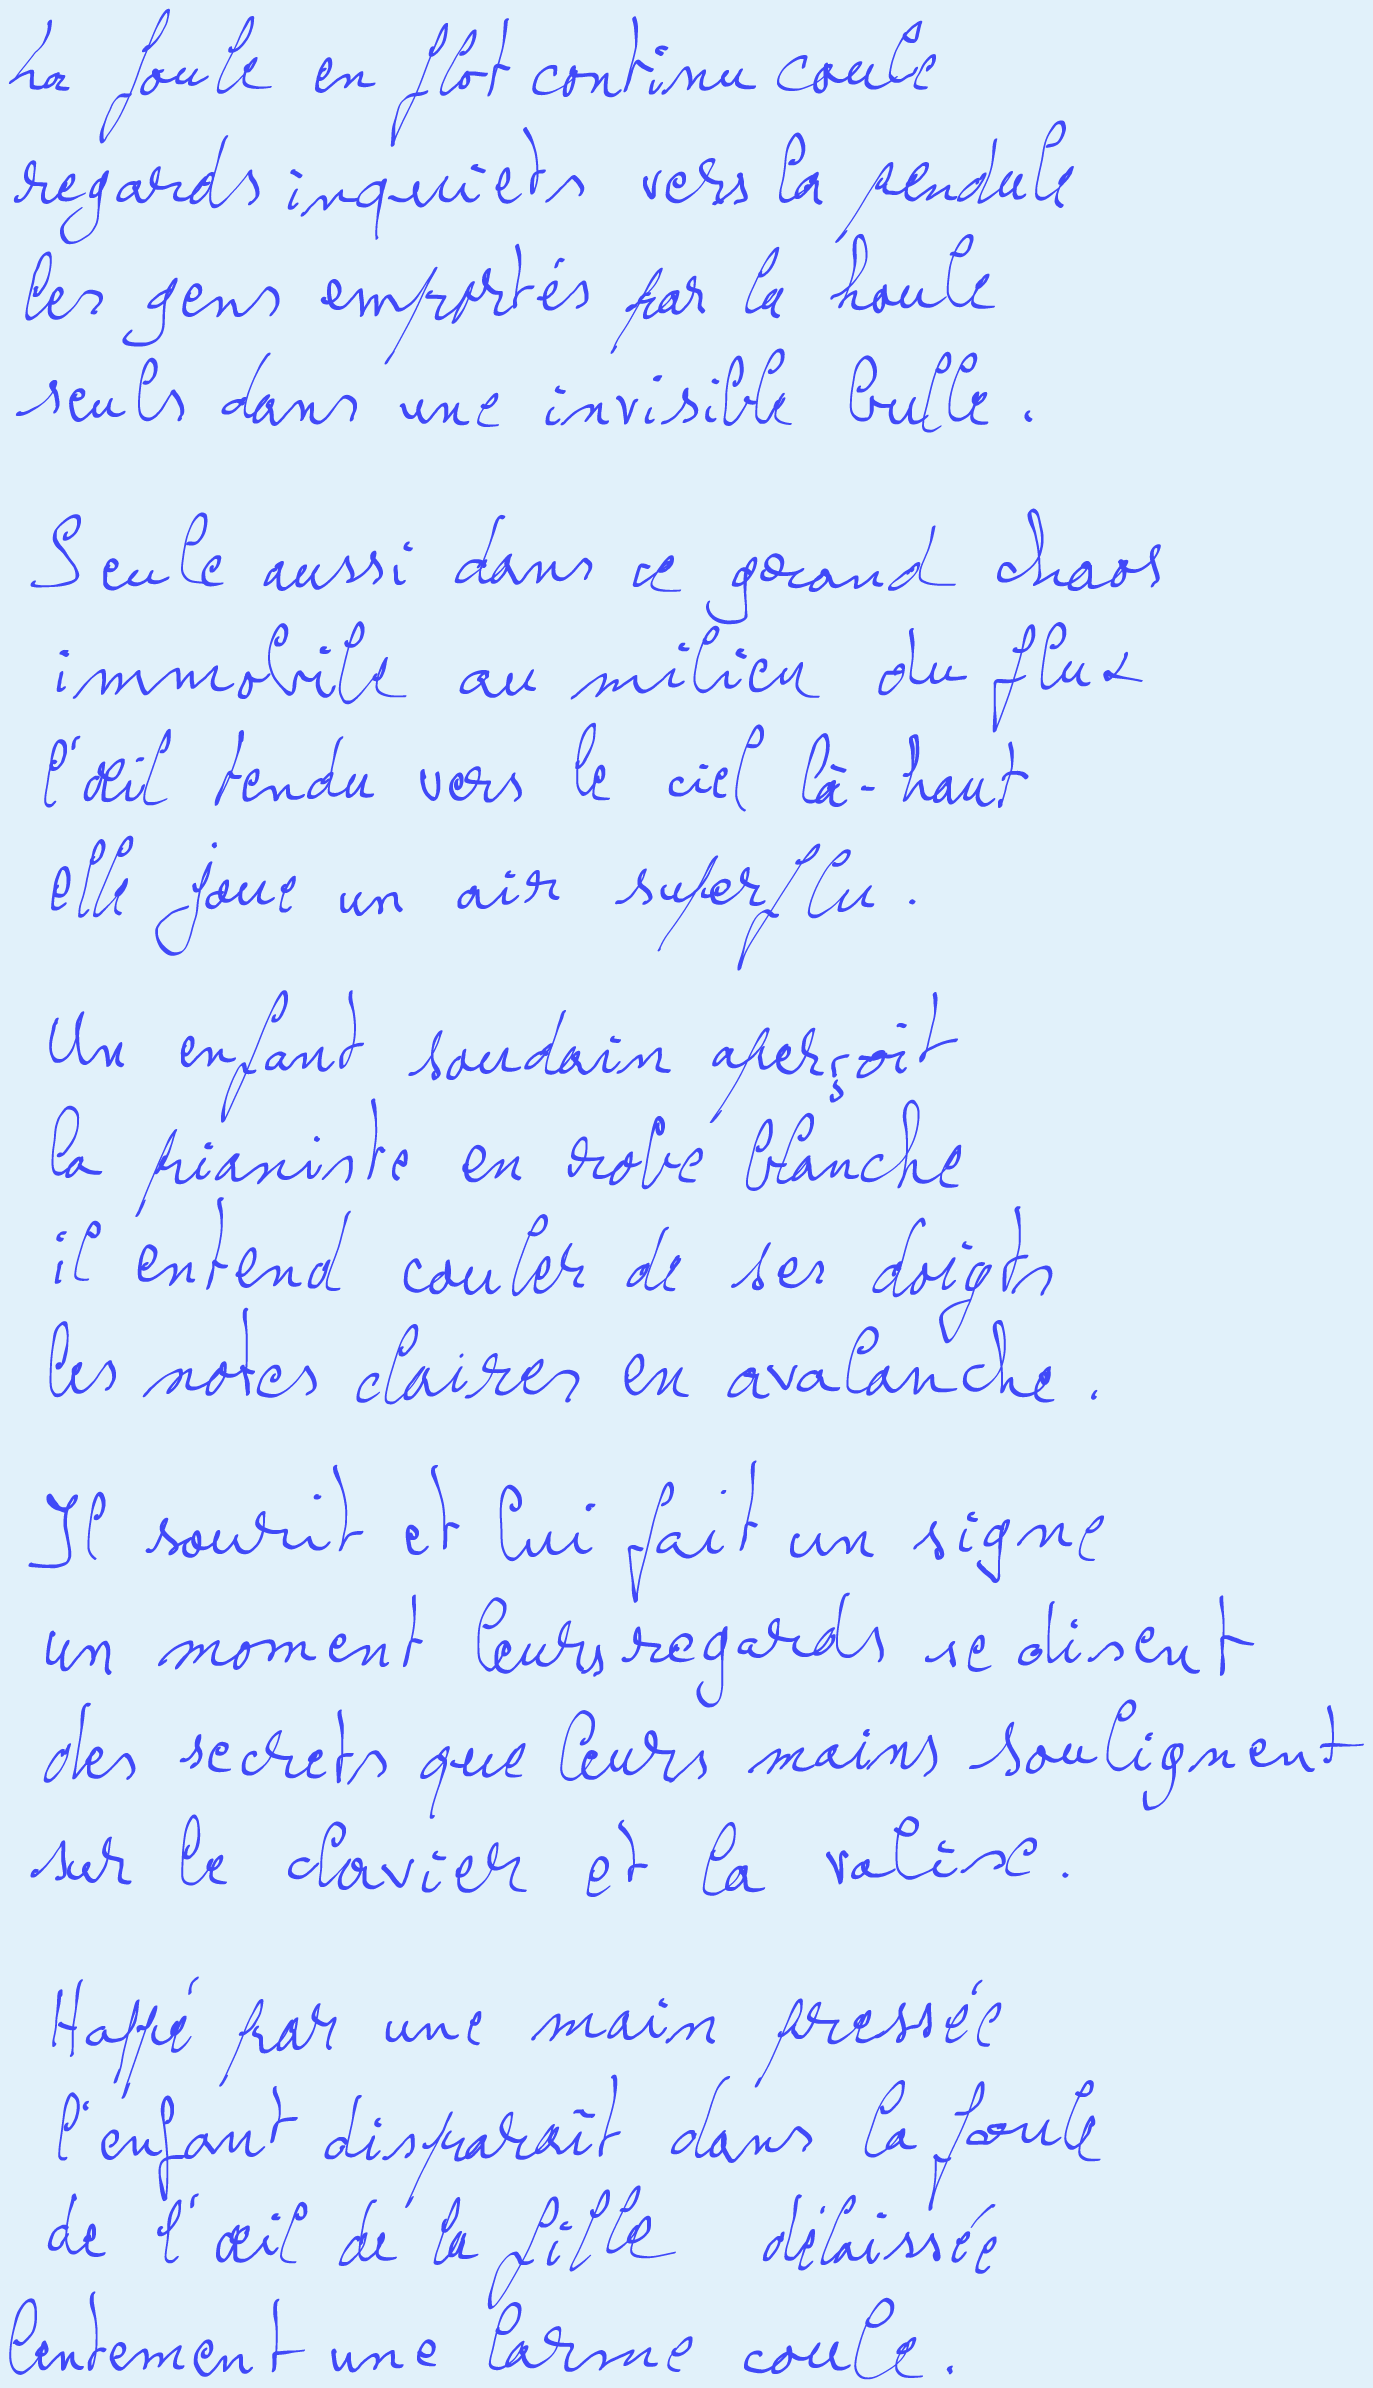 La foule en flot continu coule
regards inquiets vers la pendule
les gens emportés par la houle
seuls dans une invisible bulle.
Seule aussi dans ce grand chaos
immobile au milieu du flux
l'œil tendu vers le ciel là-haut
elle joue un air superflu.
Un enfant soudain aperçoit
la pianiste en robe blanche
il entend couler de ses doigts
les notes claires en avalanche.
Il sourit et lui fait un signe
un moment leurs regards se disent
des secrets que leurs mains soulignent
sur le clavier et la valise.
Happé par une main pressée
l'enfant disparaît dans la foule
de l'œil de la fille délaissée
lentement une larme coule.